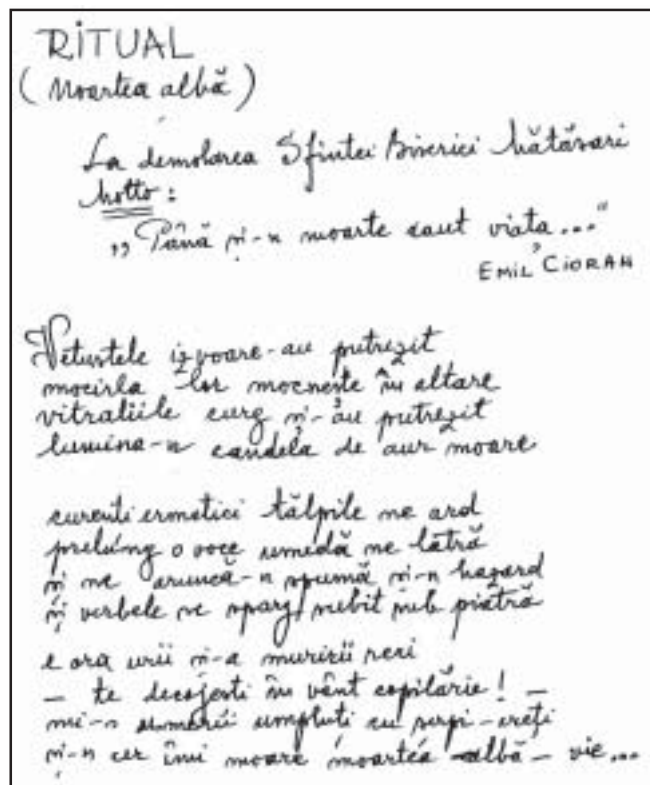 RITUAL
(Moartea albă)
La demolarea Sfintei Biserici Mătăsari
Motto:
„Până și-n moarte caut viața..."
EMIL CIORAN
Vetustele izvoare-au putrezit
mocirla lor mocnește în altare
vitraliile curg și-au putrezit
lumina-n candela de aur moare
curenți ermetici tălpile ne ard
prelung o voce umedă ne latră
și ne aruncă-n spumă și-n hazard
și verbele se sparg subit sub piatră
e ora urii și-a muririi seri
– te decojești în vânt copilărie! –
umpluți cu șerpi-
și-n cer îmi moare moartea albă – vie...